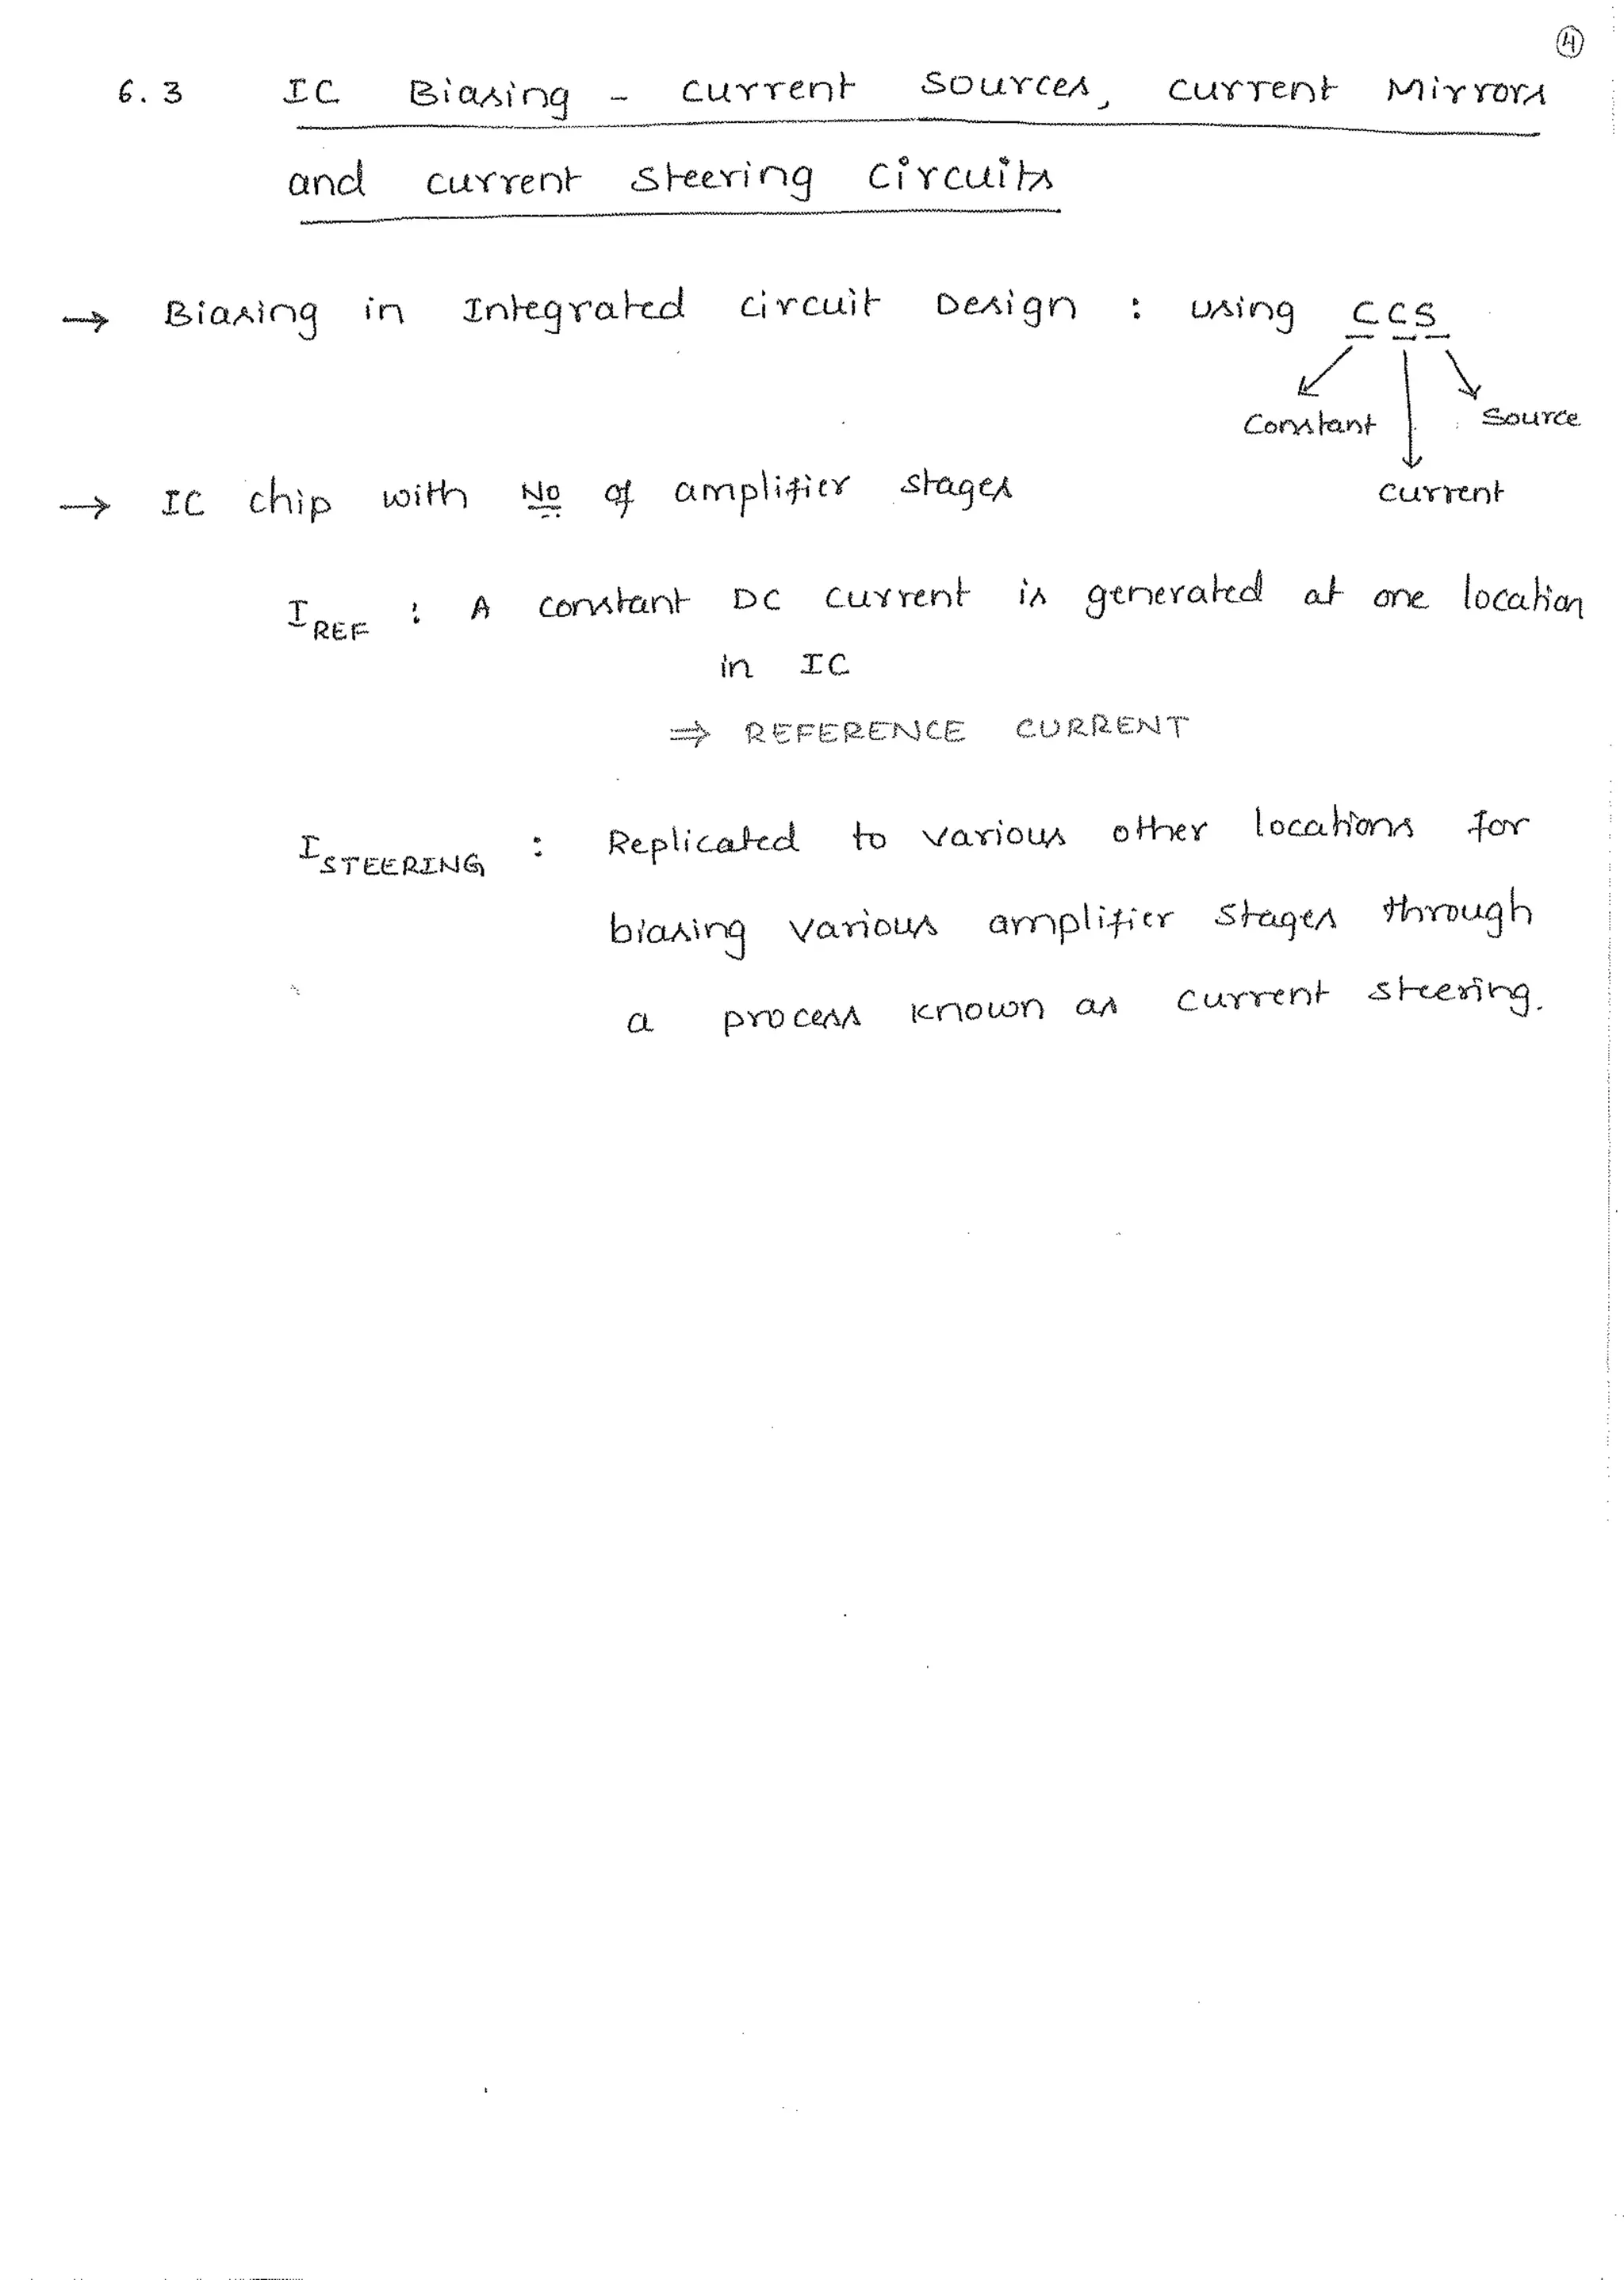 4
6.3 IC Biasing - current sources, current Mirrors
and current steering circuits
→ Biasing in Integrated circuit Design : using CCS
Constant
Source
current
→ IC chip with No of amplifier stages
I REF : A constant DC current is generated at one location
in IC
⇒ REFERENCE CURRENT
I STEERING : Replicated to various other locations for
biasing various amplifier stages through
a process known as current steering.